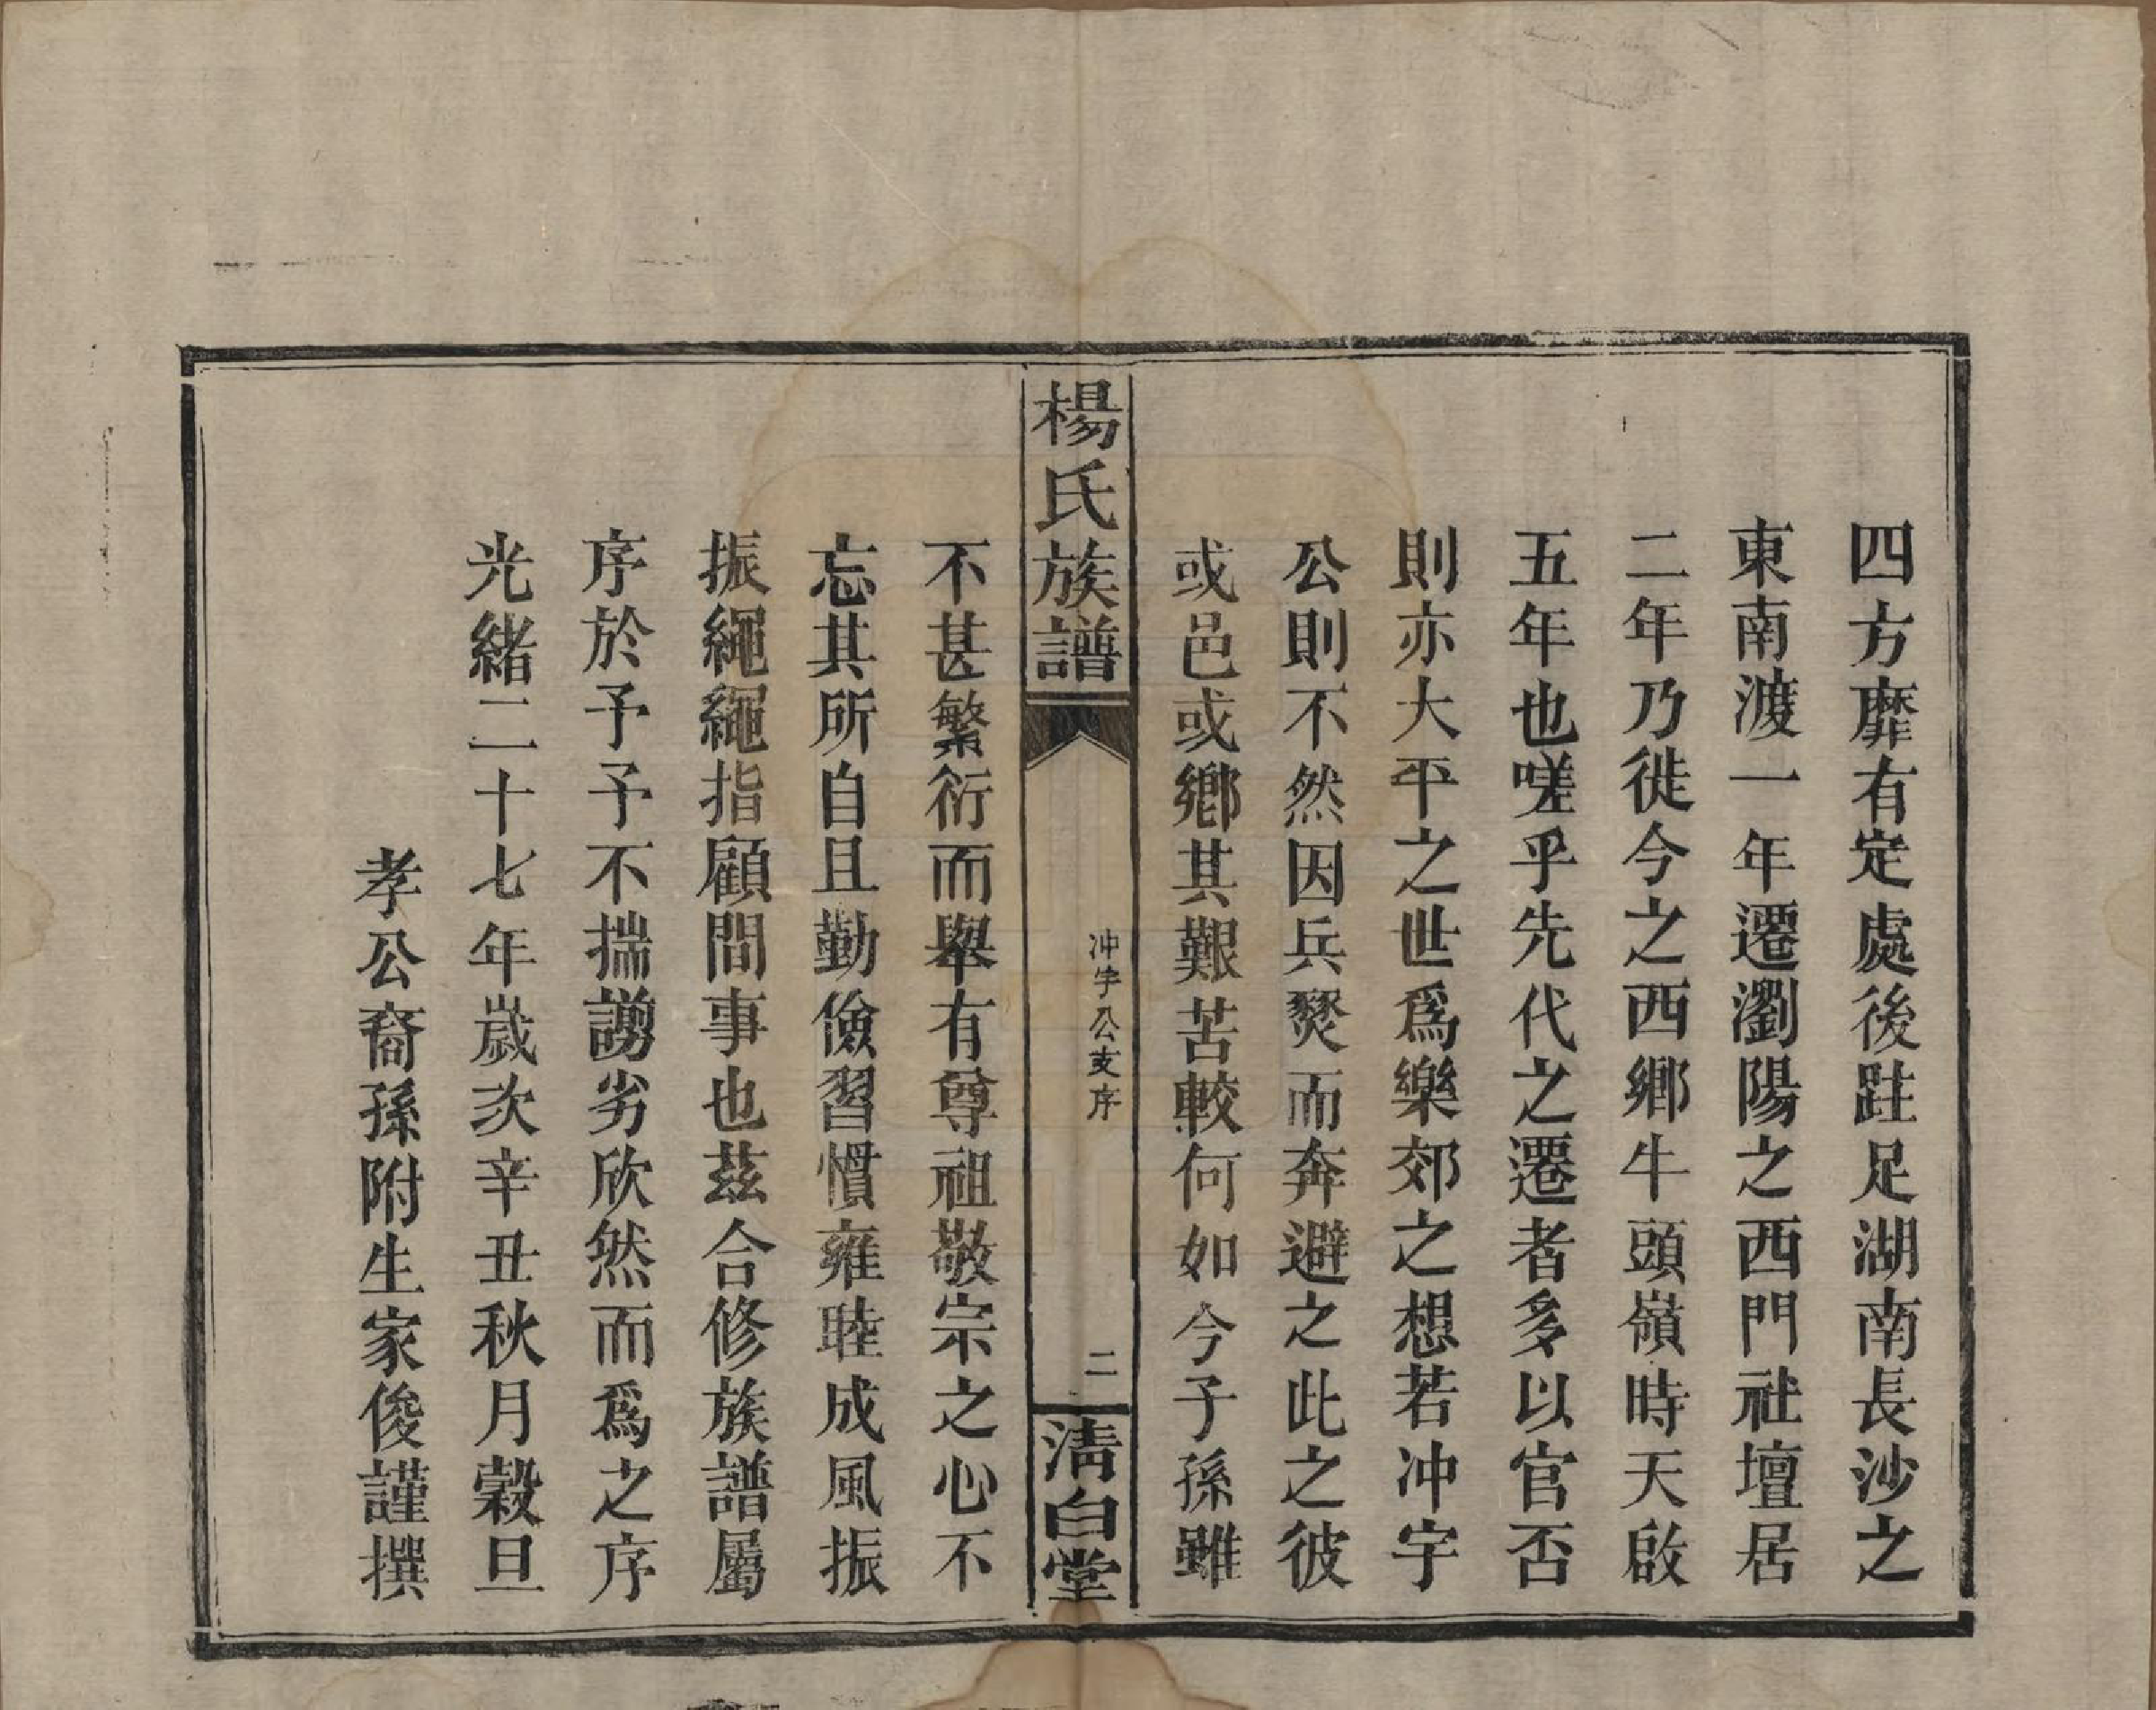 四方靡有定處後跬足湖南長沙之
東南渡一年遷瀏陽之西門社壇居
二年乃徙今之西鄉牛頭嶺時天啟
五年也嗟乎先代之遷者多以官否
則亦大平之世爲樂郊之想若冲宇
公則不然因兵燹而奔避之此之彼
或邑或鄉其艱苦較何如今子孫雖
楊氏族譜
冲宇公支序
二
清白堂
不甚繁衍而舉有尊祖敬宗之心不
忘其所自且勤儉習慣雍睦成風振
振繩繩指顧間事也茲合修族譜屬
序於予予不揣譾劣欣然而爲之序
光緒二十七年歲次辛丑秋月穀旦
孝公裔孫附生家俊謹撰